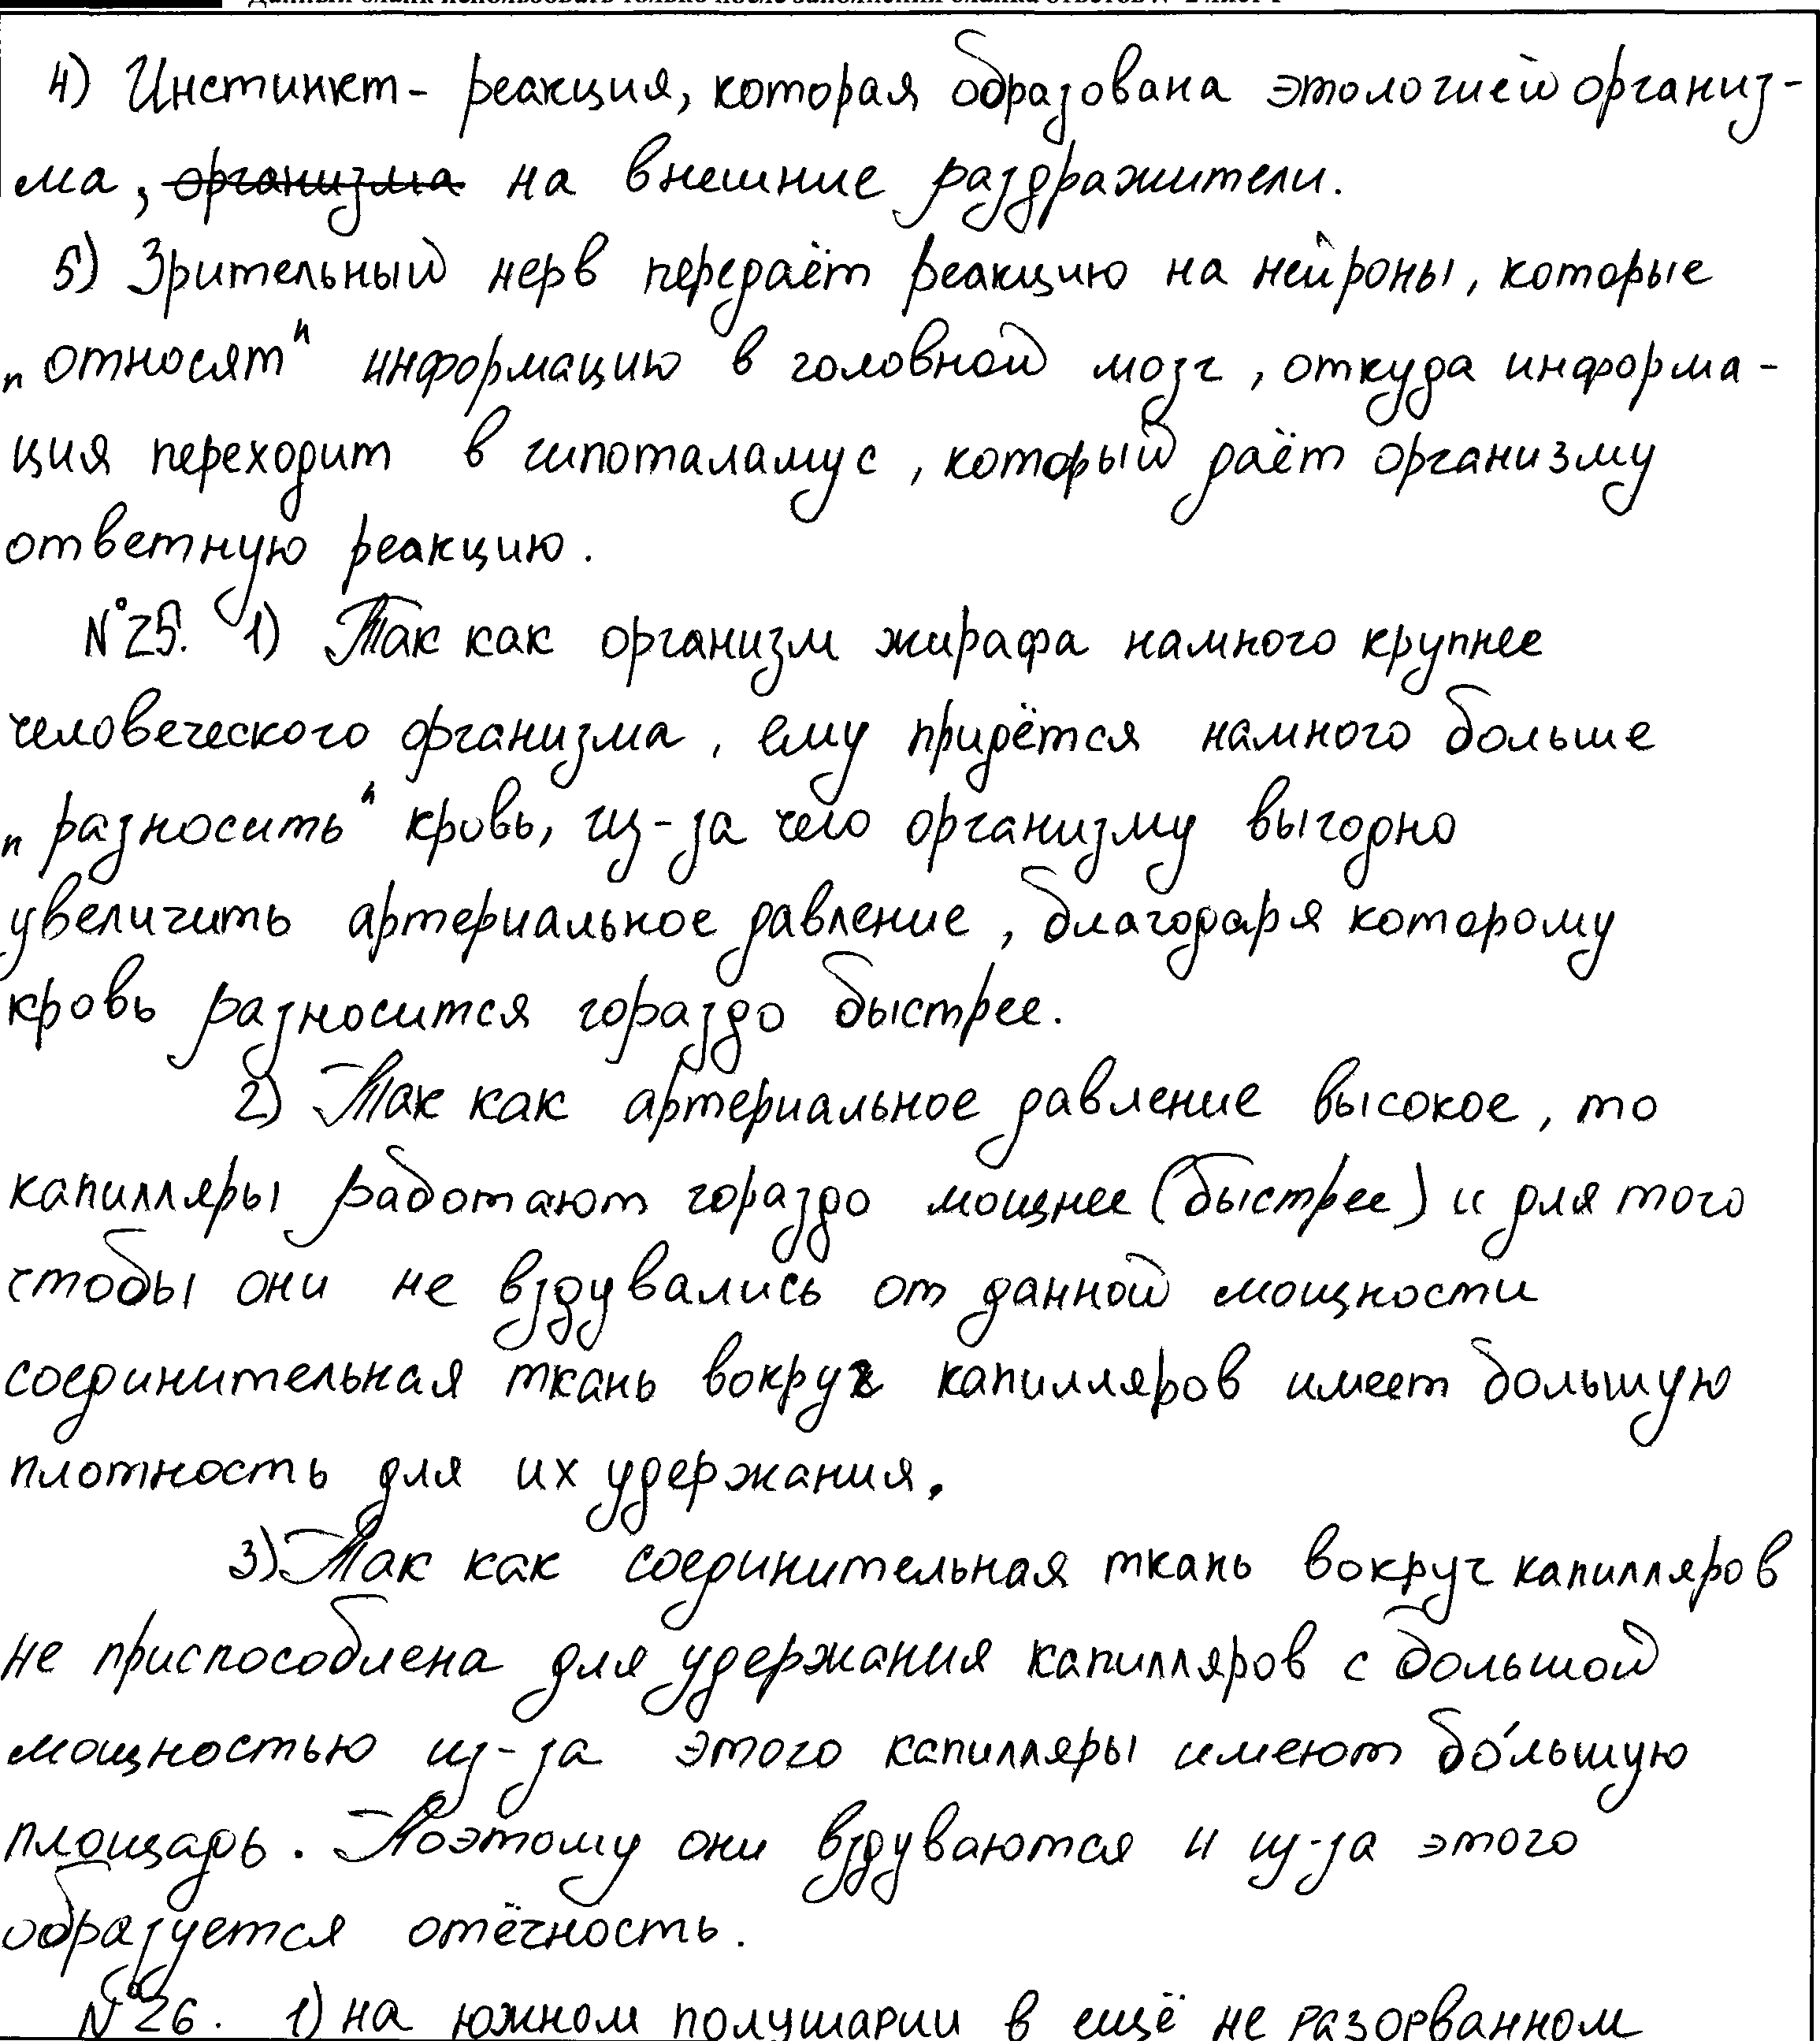 4) Инстинкт - реакция, которая образована этологией организ-
ма, организма на внешние раздражители.
5) Зрительный нерв передаёт реакцию на нейроны, которые
„относят" информацию в головной мозг, откуда информа-
ция переходит в гипоталамус, который даёт организму
ответную реакцию.
№25. 1) Так как организм жирафа намного крупнее
человеческого организма, ему придётся намного больше
„разносить" кровь, из-за чего организму выгодно
увеличить артериальное давление, благодаря которому
кровь разносится гораздо быстрее.
2) Так как артериальное давление высокое, то
капилляры работают гораздо мощнее (быстрее) и для того
чтобы они не вздувались от данной мощности
соединительная ткань вокруг капилляров имеет большую
плотность для их удержания.
3) Так как соединительная ткань вокруг капилляров
не приспособлена для удержания капилляров с большой
мощностью из-за этого капилляры имеют бо́льшую
площадь. Поэтому они вздуваются и из-за этого
образуется отёчность.
№26. 1) на южном полушарии в ещё не разорванном